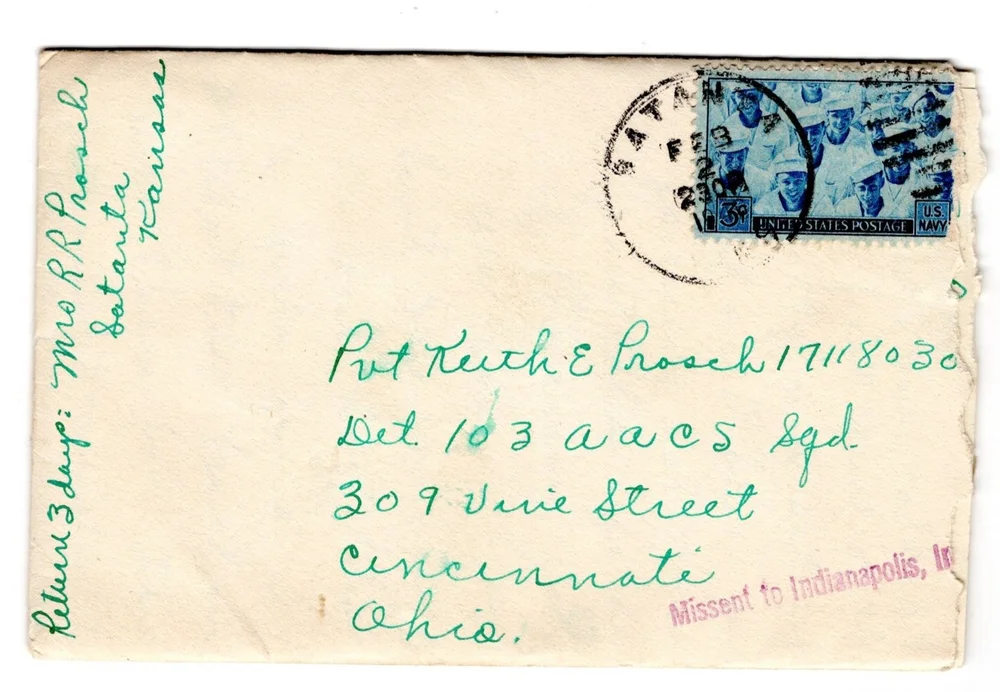 Return 3 days: Mrs R R Prosch
Satanta
Kansas
SATANTA
FEB
22
3¢
UNITED STATES POSTAGE
U.S.
NAVY
Pvt Keith E Prosch 17118030
Det. 103 AACS Sqd.
309 Vine Street
Cincinnati
Ohio.
Missent to Indianapolis, In